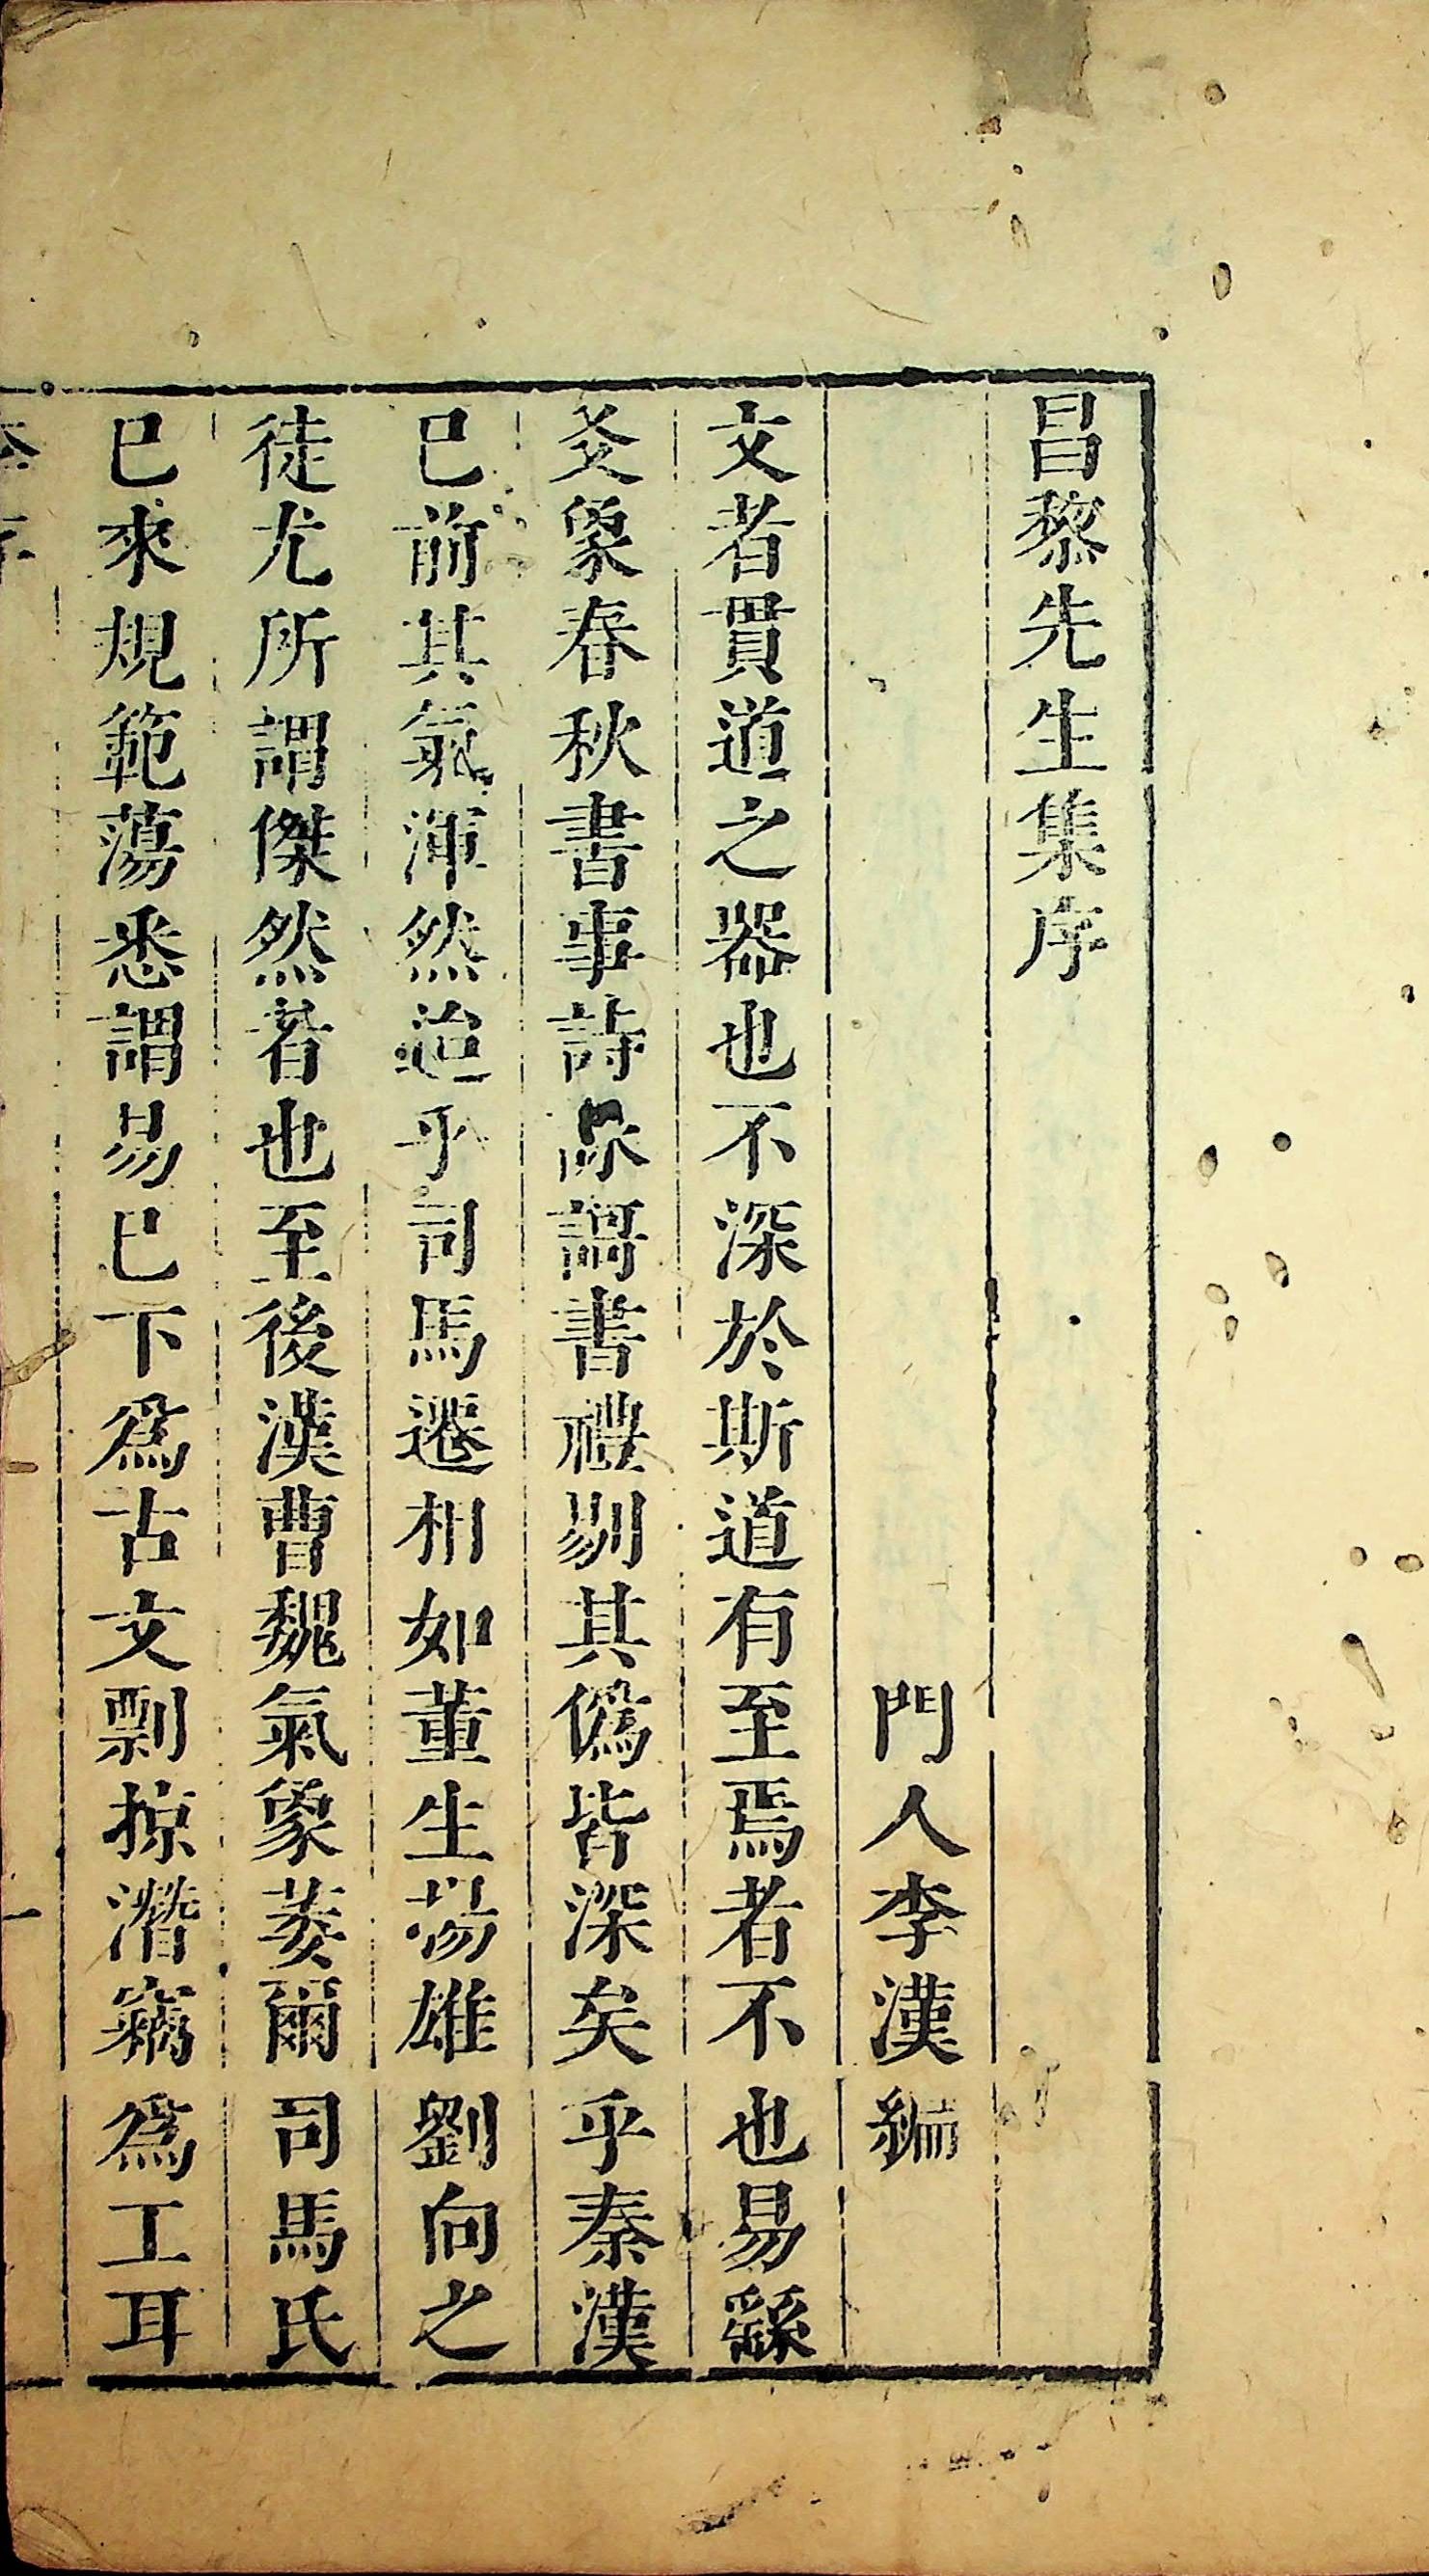 昌黎先生集序
門人李漢編
文者貫道之器也不深於斯道有至焉者不也易繇
爻象春秋書事詩詠謌書禮剔其僞皆深矣乎秦漢
巳前其氣渾然迨乎司馬遷相如董生揚雄劉向之
徒尤所謂傑然者也至後漢曹魏氣象萎爾司馬氏
巳來規範蕩悉謂易巳下爲古文剽掠潛竊爲工耳